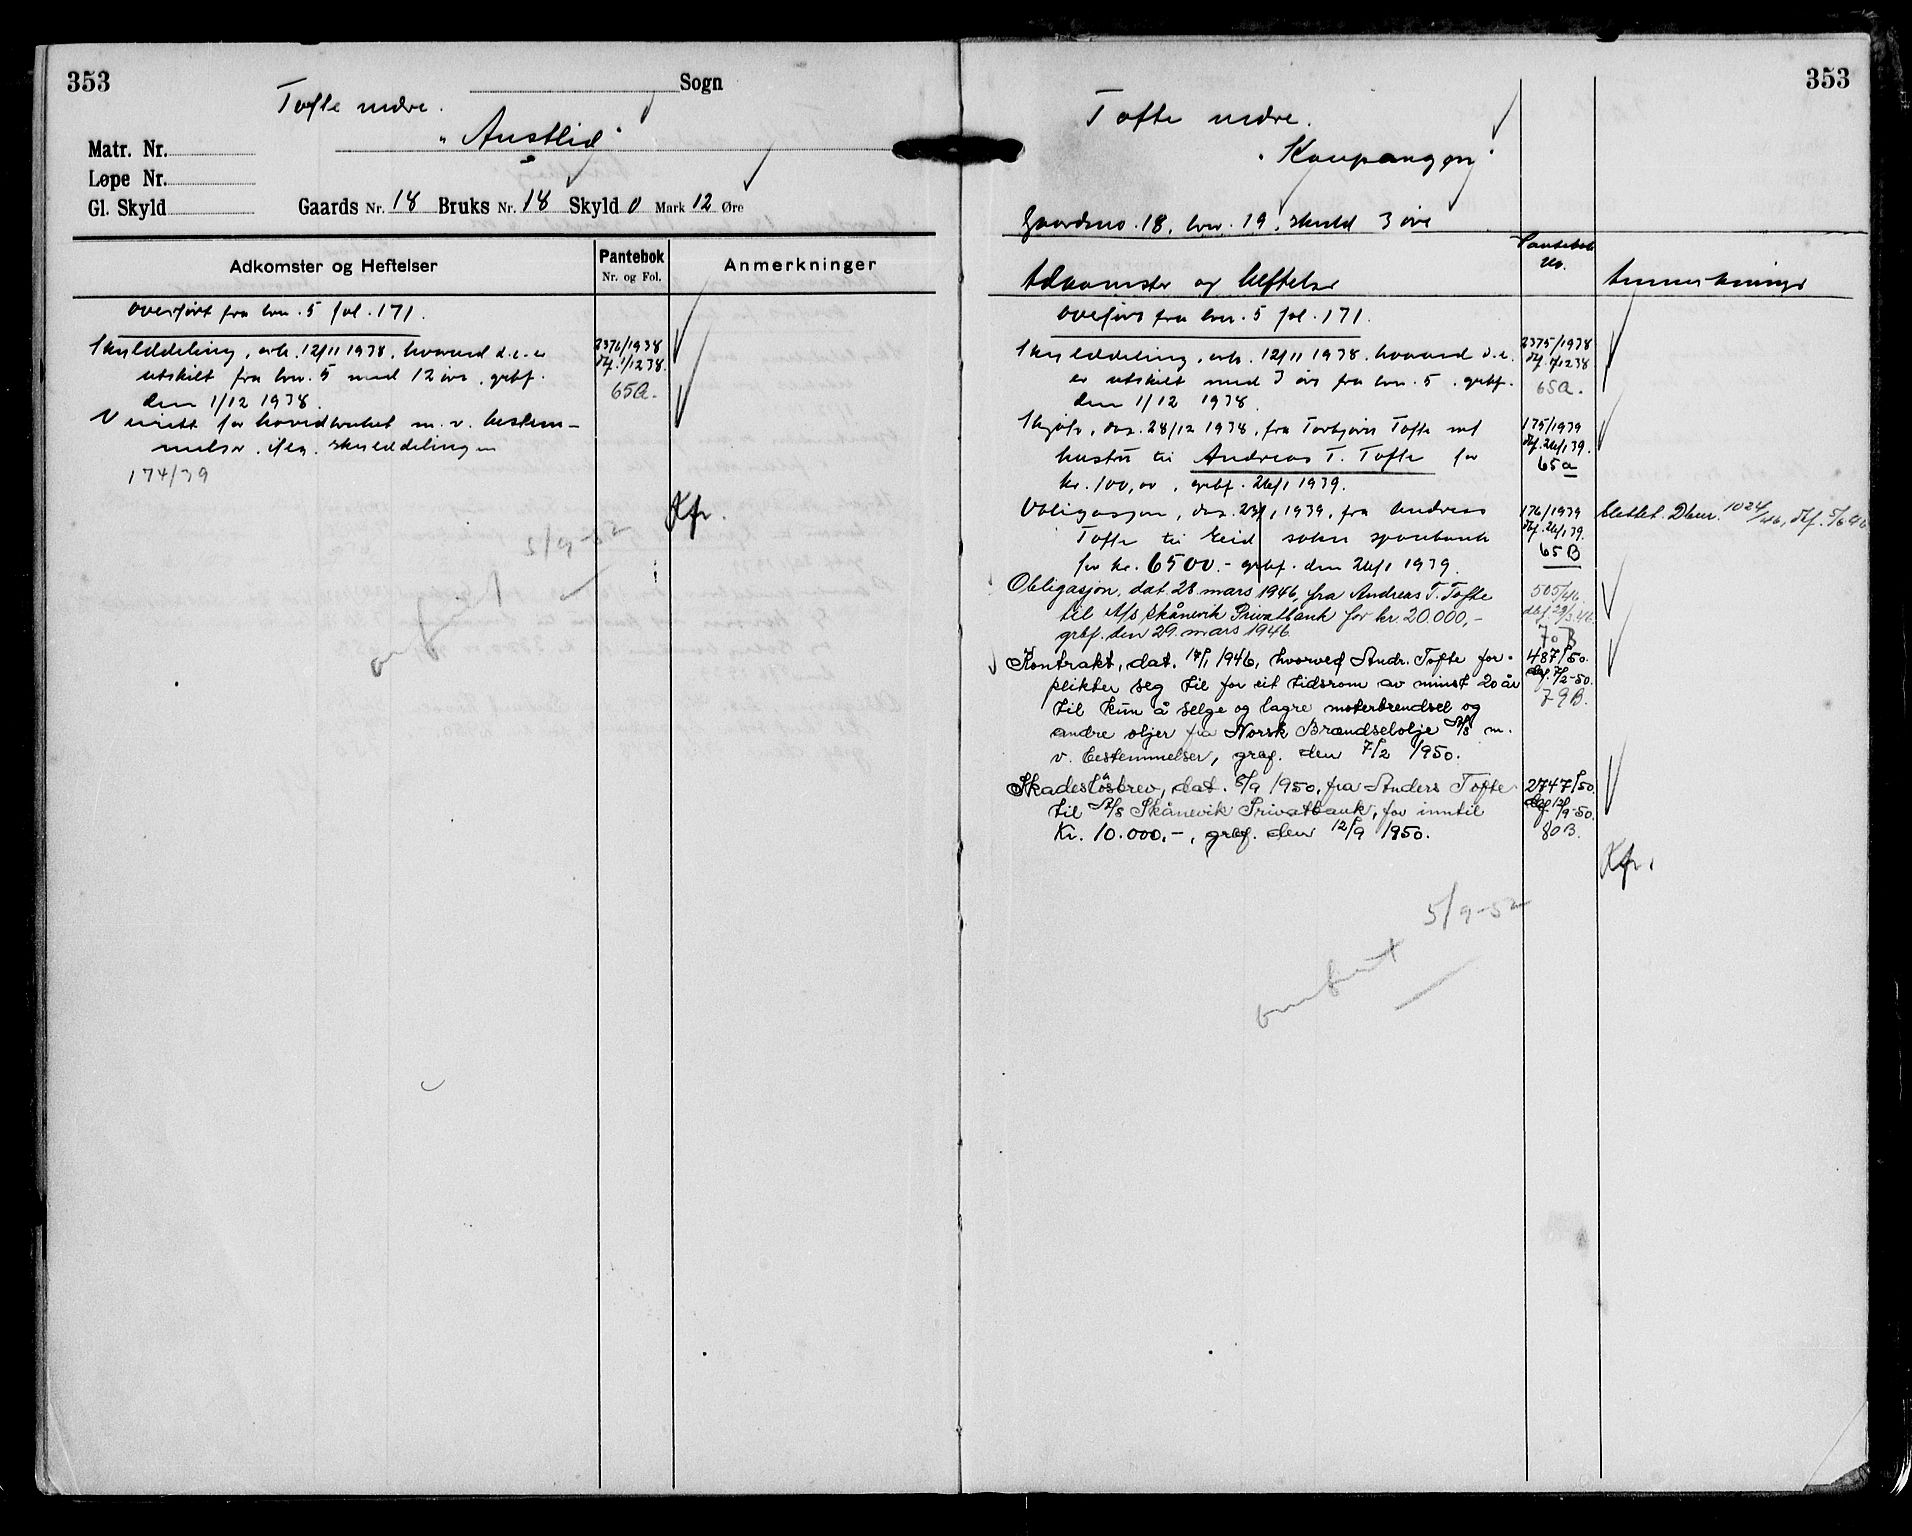 353
Sogn
Tofte nedre.
"Austlid"
Matr. Nr.
Løpe Nr.
Gl. Skyld
Gaards Nr. 18 Bruks Nr. 18 Skyld 0 Mark 12 Øre
Adkomster og Heftelser
Pantebok
Nr. og Fol.
Anmerkninger
overført fra bnr. 5 fol. 171.
Skylddeling, avh. 12/11 1938, hvorved d.e. er
2376/1938
utskilt fra bnr. 5 med 12 øre, grbf.
dbf. 1/12 38.
den 1/12 1938.
65A.
Veirett for hovedbruket m. v. bestem-
melser iflg. skylddelingen
174/39
Kfr.
5/9-52
omført
353
Tofte nedre.
"Kaupangen"
Gaardsno. 18, bnr. 19, skyld 3 øre
Pantebok
No.
Adkomster og heftelser
Anmerkninger
overført fra bnr. 5 fol. 171.
Skylddeling, avh. 12/11 1938, hvorved d.e.
2375/1938
er utskilt med 3 øre fra bnr. 5, grbf.
dbf. 1/12 38
den 1/12 1938.
65A.
Skjøte, dat. 28/12 1938, fra Torbjørn Tofte m/
175/1939
hustru til Andreas T. Tofte for
dbf. 26/1 39.
65a
kr. 100,00, grbf. 26/1 1939.
Obligasjon, dat. 23/1 1939, fra Andreas
176/1939
Slettet. Dbnr. 1024/46, dbf. 5/6 46
Tofte til Eid sokns sparebank
dbf. 26/1 39.
65B
for kr. 6500.- grbf. den 26/1 1939.
Obligasjon, dat. 28 mars 1946, fra Andreas T. Tofte
505/46
til A/s Skånevik Privatbank for kr. 20.000,-
dbf. 29/3.46.
grbf. den 29. mars 1946
70B
Kontrakt, dat. 17/1 1946, hvorved Andr. Tofte for-
487/50.
plikter seg til for eit tidsrom av minst 20 år
dbf. 7/2-50.
til kun å selge og lagre moterbrendsel og
79B.
andre oljer fra Norsk Brændselolje A/S m.
v. bestemmelser, grbf. den 7/2 1950.
Skadesløsbrev, dat. 5/9 1950, fra Anders Tofte
2747/50.
til A/S Skånevik Privatbank, for inntil
dbf. 12/9-50.
Kr. 10.000,-, grbf. den 12/9 1950.
80B.
Kfr.
5/9-52
omført